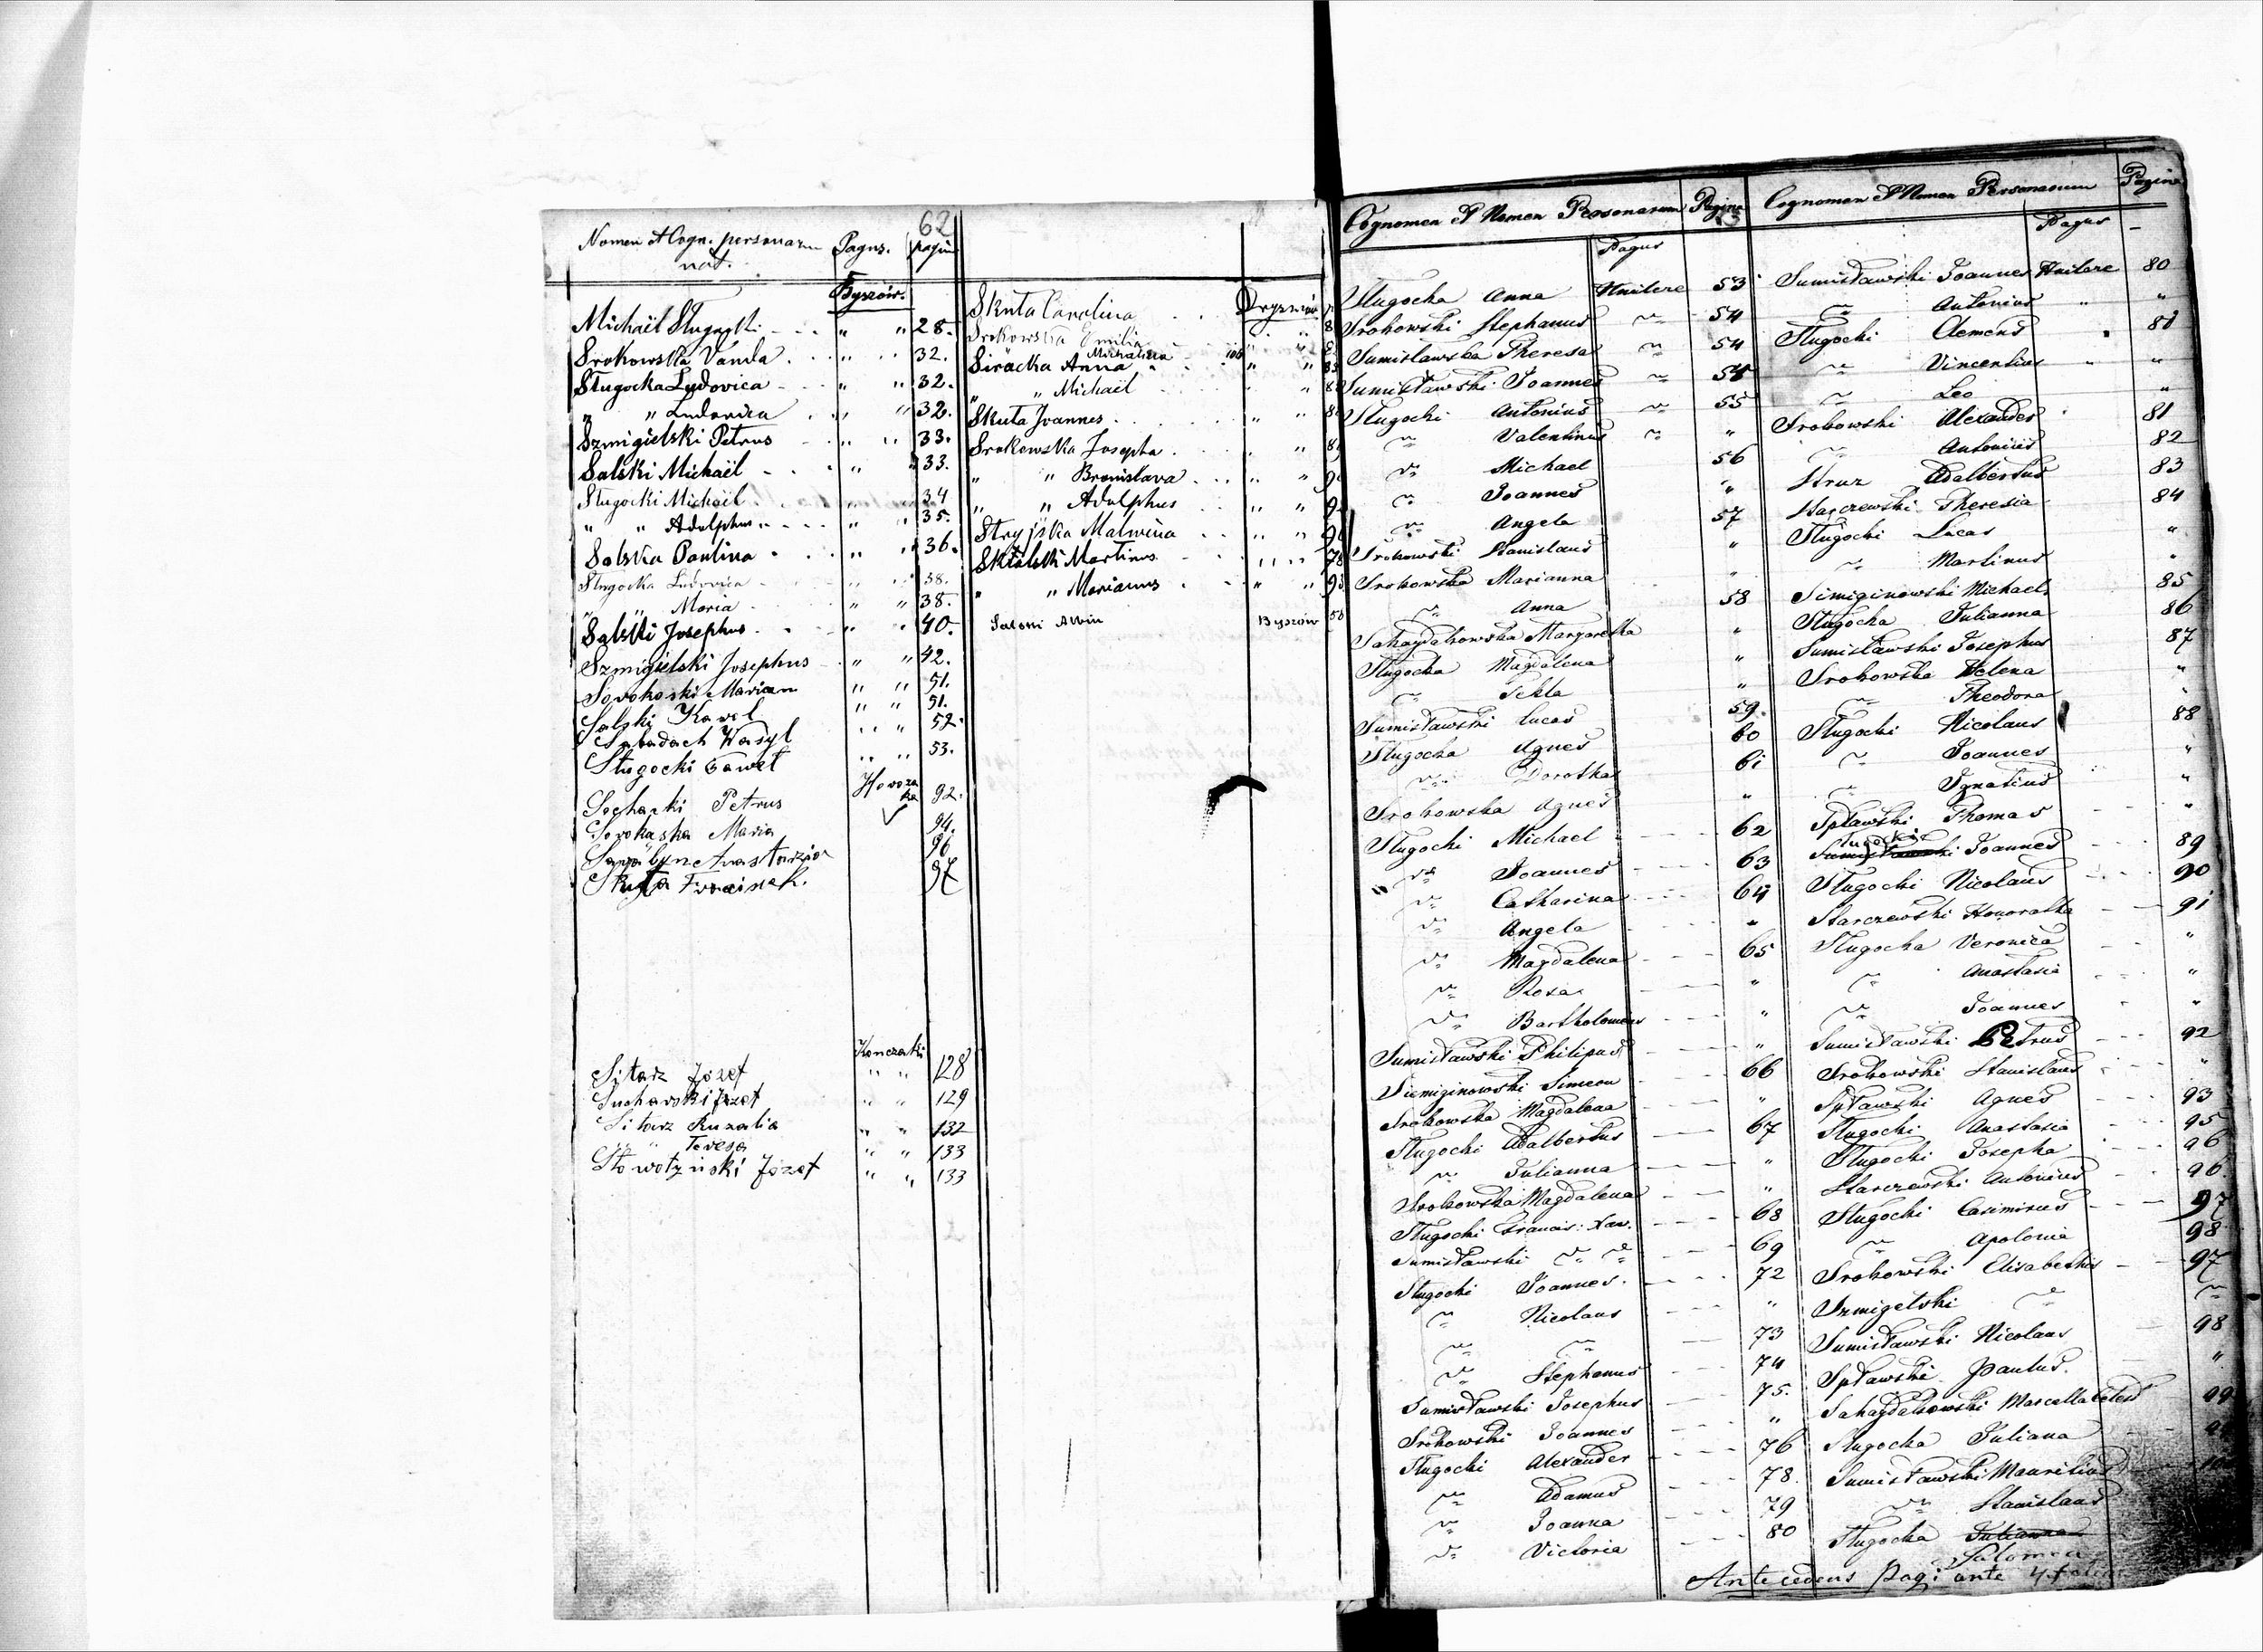 62
Nomen et Cogn. personarum Pagus. pagin
nat.
Byszów.
Michaël Sługocki " " 28.
Srokowska Vanda " " 32.
Sługocka Ludovica " " 32.
" " Ludovica " " 32.
Szmigielski Petrus " " 33.
Salski Michaël " " 33.
Sługocki Michaël " " 34
" " Adolphus " " 35.
Salska Paulina " " 36.
Sługocka Ludovica " " 38.
" " Maria " " 38.
Salski Josephus " " 40.
Szmigielski Josephus " " 42.
Sorokoski Marian " " 51.
Salski Karol " " 51.
Sabadach Wasyl " " 52.
Sługocki Paweł " " 53.
Socharki Petrus 92.
Sorokaska Maria 94.
Anastazia 96
Skuta Franciszek. 97
Konczaki
Sitarz Józef " " 128
Sucharski Józef " " 129
Sitarz Ruzalia " " 132
" " Teresa " " 133
Słowotyński Józef " " 133
Skuta Carolina
Srokowska Emilia " "
Michalina
Siracka Anna " "
" " Michaël "
Skuta Joannes " "
Srokowska Josepha " "
" " Bronislava " "
" " Adolphus " "
Stryjska Malwina " "
Skalski Martinus " " 78
" " Marianus " " 93
Salski Albin Byszów 58
Cognomen et Nomen Personarum Pagina
Pagus
Sługocka Anna Hnilcze 53
Srokowski Stephanus 54
Sumisławska Theresa 54
Sumisławski Joannes 54
Sługocki Antonius 55
Valentinus "
Michael 56
Joannes "
Angela 57
Srokowski Stanislaus "
Srokowska Marianna "
Anna 58
Sahajdakowska Margaretha "
Sługocka Magdalena "
Tekla "
Sumisławski Lucas 59.
Sługocka Agnes 60
Dorothea 61
Srokowska Agnes "
Sługocki Michael 62
Joannes 63
Catharina 64
Angela "
Magdalena 65
Rosa "
Bartholomeus "
Sumisławski Philipus "
Siemiginowski Simeon 66
Srokowska Magdalena "
Sługocki Adalbertus 67
Julianna "
Srokowska Magdalena "
Sługocki Francis: Xav. 68
Sumisławski 69
Sługocki Joannes. 72
Nicolaus "
73
Stephanus 74
Sumisławski Josephus 75.
Srokowski Joannes "
Sługocki Alexander 76
Adamus 78.
Joanna 79
Victoria 80
Cognomen et Nomen Personarum Pagina
Pagus
Sumisławski Joannes Hnilcze 80
Antonius " "
Sługocki Clemens " 81
Vincentius " "
Leo "
Srokowski Alexander 81
Antonius 82
Struz Adalbertus 83
Starczewski Theresia 84
Sługocki Lucas "
Martinus "
Simiginowski Michael 85
Sługocka Julianna 86
Sumisławski Josephus 87
Srokowska Helena "
Theodora "
Sługocki Nicolaus 88
Joannes "
Ignatius "
Spławski Thomas "
Sługocki
Joannes 89
Sługocki Nicolaus 90
Starczewski Honoratha 91
Sługocka Veronica "
Anastasia "
Joannes "
Sumisławski Petrus 92
Srokowski Stanislaus "
Spławski Agnes 93
Sługocki Anastasia 95
Sługocki Josepha 96
Starczewski Antonius 96.
Sługocki Casimirus 97
Apolonia 98
Srokowski Elisabetha 97
Szmigelski
Sumisławski Nicolaus 98
Spławski Paulus. "
Sahajdakowski Marcella 99
Sługocka Juliana
Sumisławski Mauritius
Stanislaus
Sługocka Julianna
Salomea
Antecedens pagi ante 4 folia